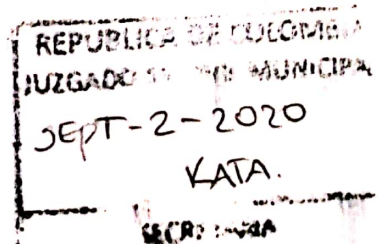 REPUBLICA DE COLOMBIA
JUZGADO MUNICIPAL
SEPT-2-2020
KATA.
SECRETARIA